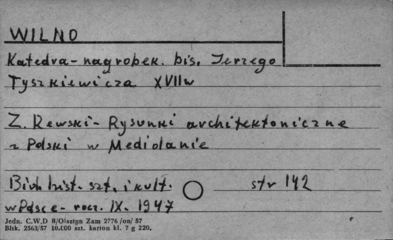 WILNO
Katedra - nagrobek. bis. Jerzego
Tyszkiewicza XVIIw
Z. Rewski - Rysunki architektoniczne
z Polski w Mediolanie
Biul. Inst. szt. i kult. str 142
w Polsce - rocz. IX. 1947
Jedn. C.W.D 8/Olsztyn Zam 2776 /on/ 57
Bisk. 2563/57 10.000 szt. karton kl. 7 g 220.